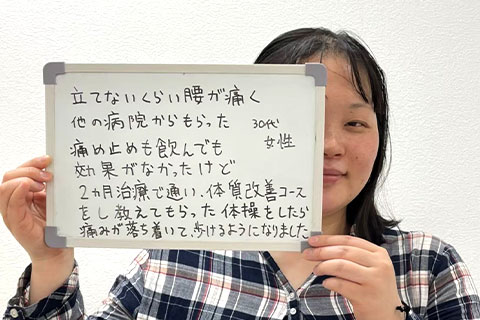 立てないくらい腰が痛く
他の病院からもらった
30代
女性
痛め止めも飲んでも
効果がなかったけど
2ヵ月治療で通い、体質改善コース
をし教えてもらった体操をしたら
痛みが落ち着いて、歩けるようになりました